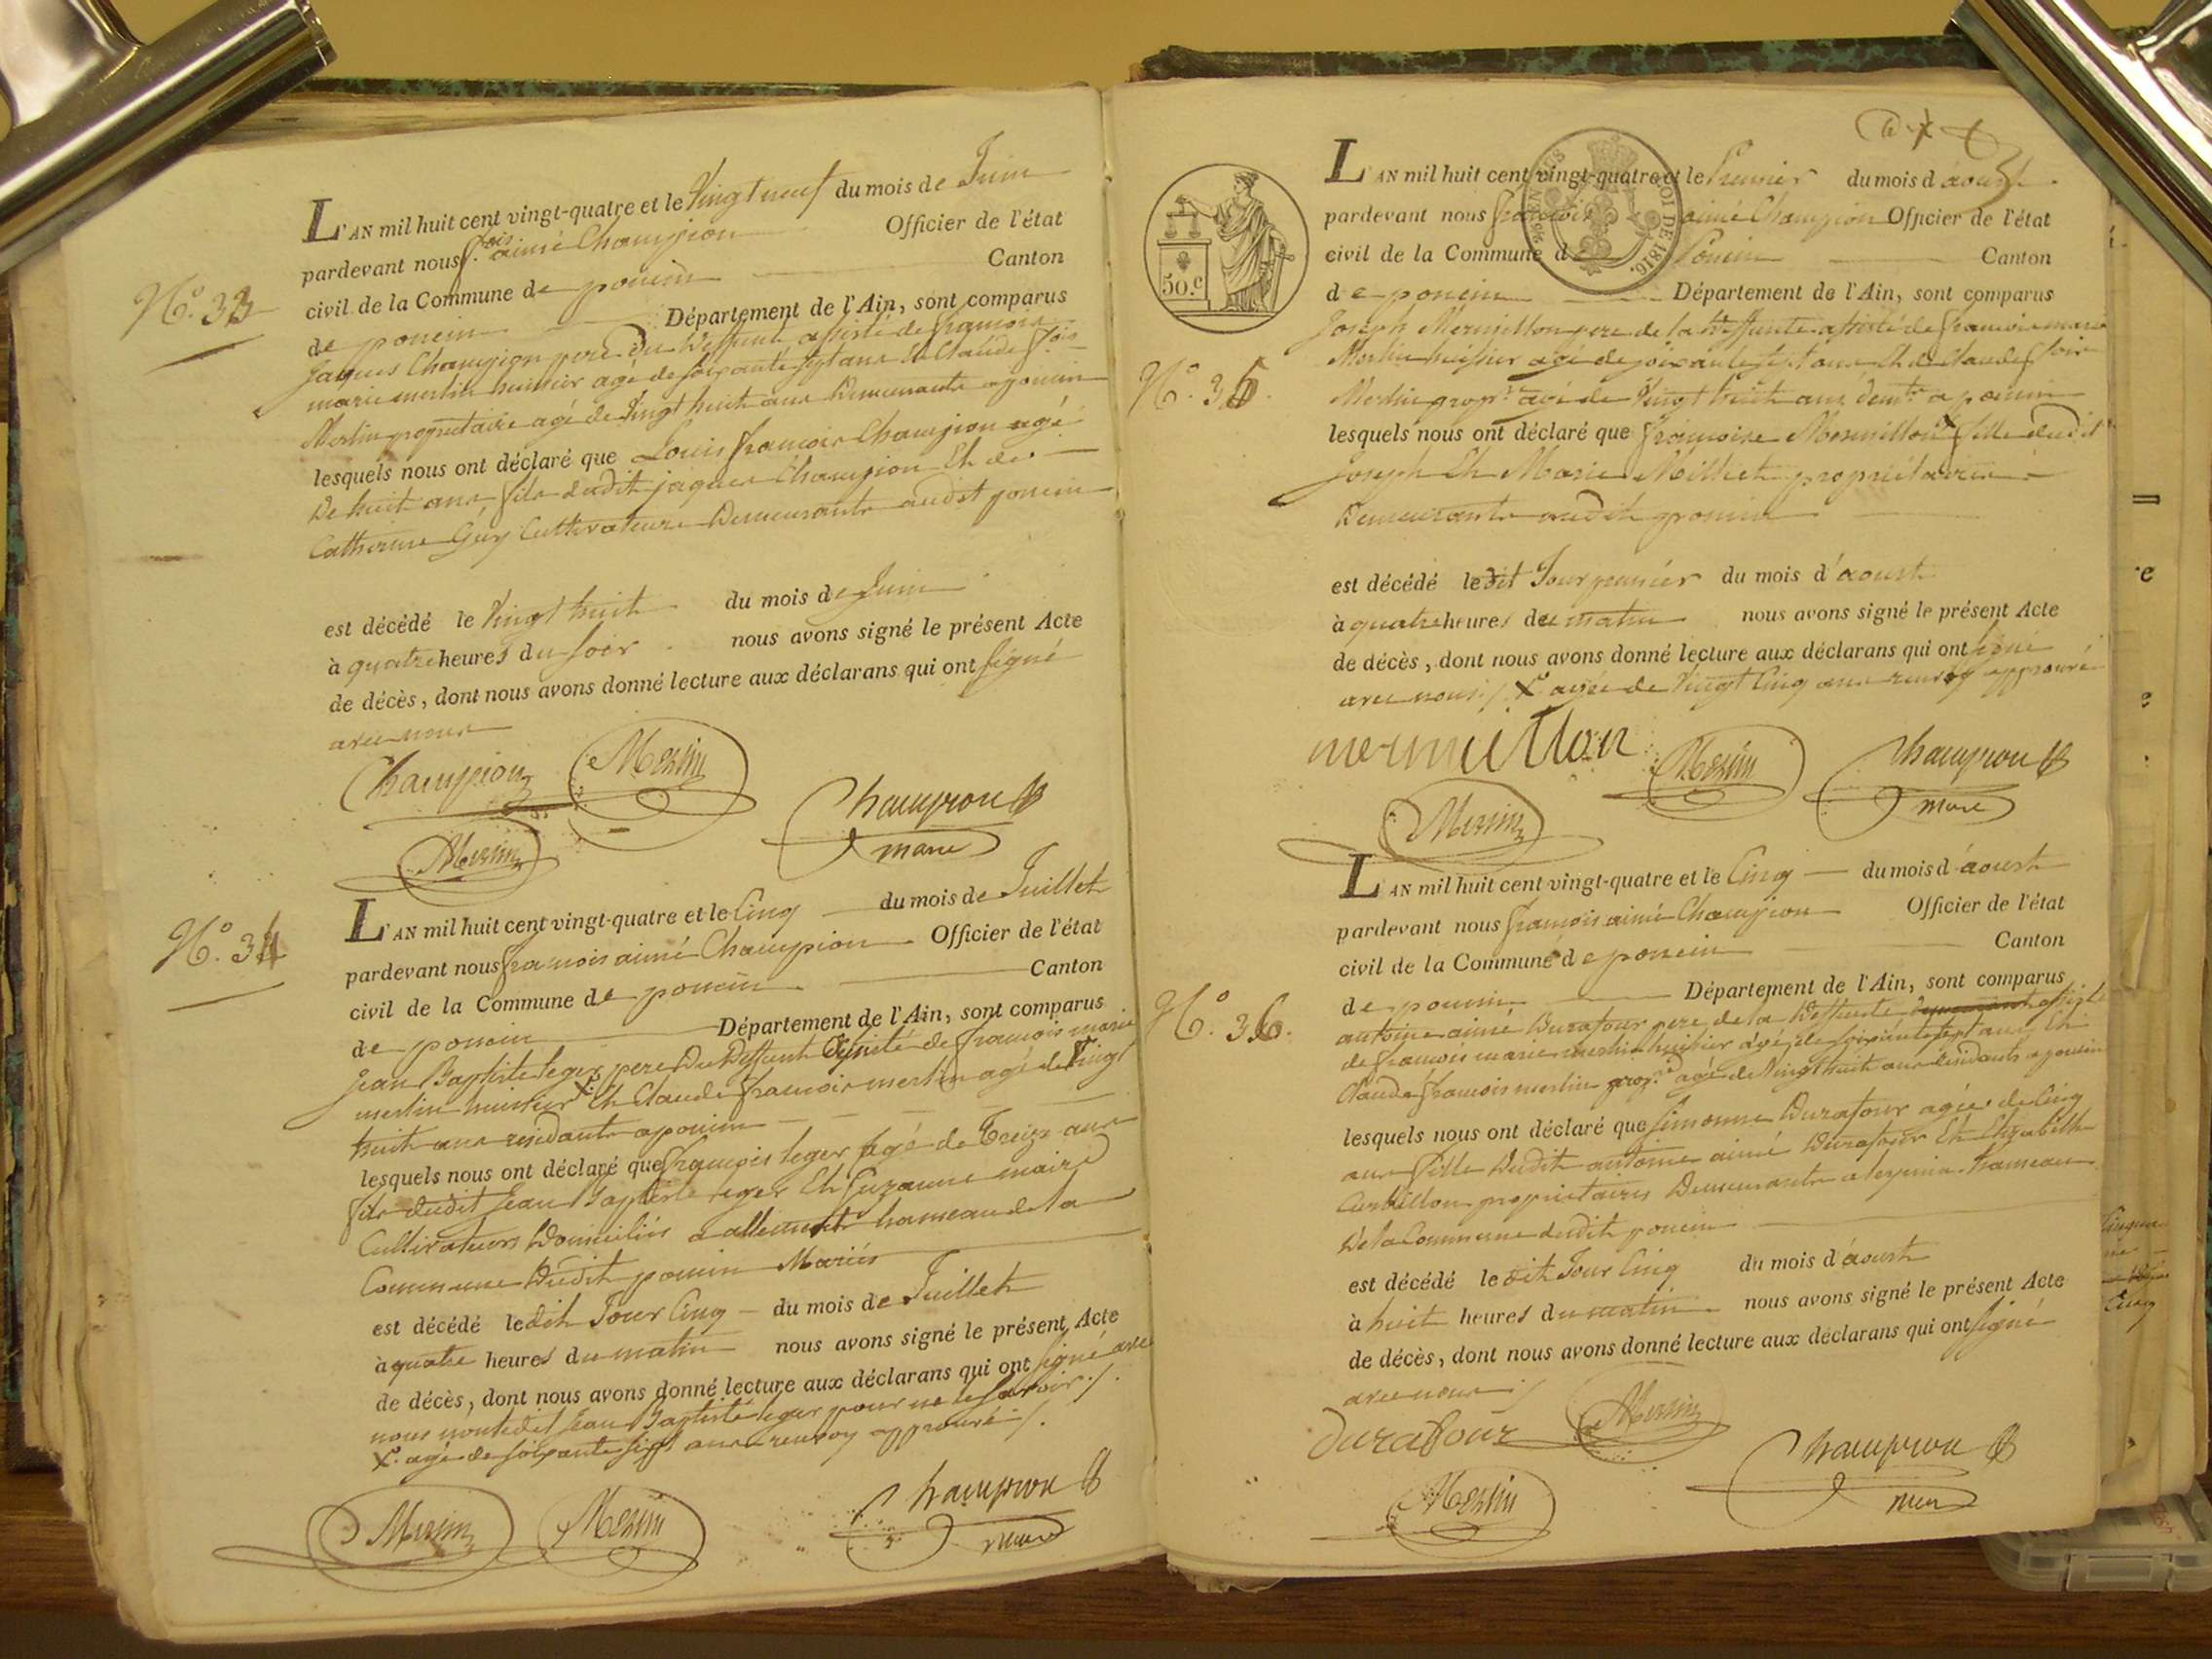 N.º 33
L'AN mil huit cent vingt-quatre et le Vingt neuf du mois de Juin
pardevant nous f.ois aimé Champion Officier de l'état
civil de la Commune de poncin Canton
de poncin Département de l'Ain, sont comparus
jaques Champion pere du Deffunt assisté de francois
marie merlin huissier agé de soixante sept ans Et Claude f.ois
Merlin propriétaire agé de Vingt huit ans Demeurants a poncin
lesquels nous ont déclaré que Louis francois Champion agé
de huit ans fils dudit jaques Champion Et de
Catherine Guy Cultivateurs Demeurants audit poncin
est décédé le Vingt huit du mois de Juin
à quatre heures du soir nous avons signé le présent Acte
de décès, dont nous avons donné lecture aux déclarans qui ont signé
avec nous
Champion Merlin
Champion
maire
Merlin
N.º 34
L'AN mil huit cent vingt-quatre et le Cinq du mois de Juillet
pardevant nous francois aimé Champion Officier de l'état
civil de la Commune de poncin Canton
de poncin Département de l'Ain, sont comparus
Jean Baptiste leger pere Du Deffunt assisté de francois marie
merlin huissier X Et Claude francois merlin agé de Vingt
huit ans residants a poncin
lesquels nous ont déclaré que francois leger agé de Treize ans
fils dudit Jean Baptiste leger Et Suzanne maire
Cultivateurs Domiciliés a allement hameau de la
Commune Dudit poncin Mariés
est décédé ledit Jour Cinq du mois de Juillet
à quatre heures du matin nous avons signé le présent Acte
de décès, dont nous avons donné lecture aux déclarans qui ont signé avec
nous non ledit Jean Baptiste leger pour ne le savoir ./.
X. agé de soixante sept ans renvoy approuvé ./.
Merlin Merlin Champion
maire
50.C
LOI DE 1816.
L'AN mil huit cent vingt-quatre et le Premier du mois d'aoust
pardevant nous francois aimé Champion Officier de l'état
civil de la Commune de Poncin Canton
de poncin Département de l'Ain, sont comparus
N.º 35.
Joseph Mermillon pere de la Deffunte assisté de francois marie
Merlin huissier agé de soixante sept ans Et de Claude f.ois
Merlin prop.re agé de Vingt huit ans dem.ts a poncin
lesquels nous ont déclaré que francoise Mermillon X fille dudit
Joseph Et Marie Milliet propriétaires
Demeurants audit poncin
est décédé ledit Jour premier du mois d'aoust
à quatre heures du matin nous avons signé le présent Acte
de décès, dont nous avons donné lecture aux déclarans qui ont signé
avec nous ./. X. agée de Vingt Cinq ans renvoy approuvé
mermillon Merlin Champion
maire
Merlin
L'AN mil huit cent vingt-quatre et le Cinq du mois d'aoust
pardevant nous francois aimé Champion Officier de l'état
civil de la Commune de poncin Canton
N.º 36.
de poncin Département de l'Ain, sont comparus
antoine aimé Durafour pere de la Deffunte assisté
de francois marie merlin huissier agé de soixante sept ans Et
Claude francois merlin prop.re agé de Vingt huit ans residants a poncin
lesquels nous ont déclaré que simonne Durafour agée de Cinq
ans fille Dudit antoine aimé Durafour Et Elizabeth
Curbillon propriétaires Demeurants a hameau
De la Commune dudit poncin
est décédé ledit Jour Cinq du mois d'aoust
à huit heures du matin nous avons signé le présent Acte
de décès, dont nous avons donné lecture aux déclarans qui ont signé
avec nous ./
Durafour Merlin
Champion
maire
Merlin